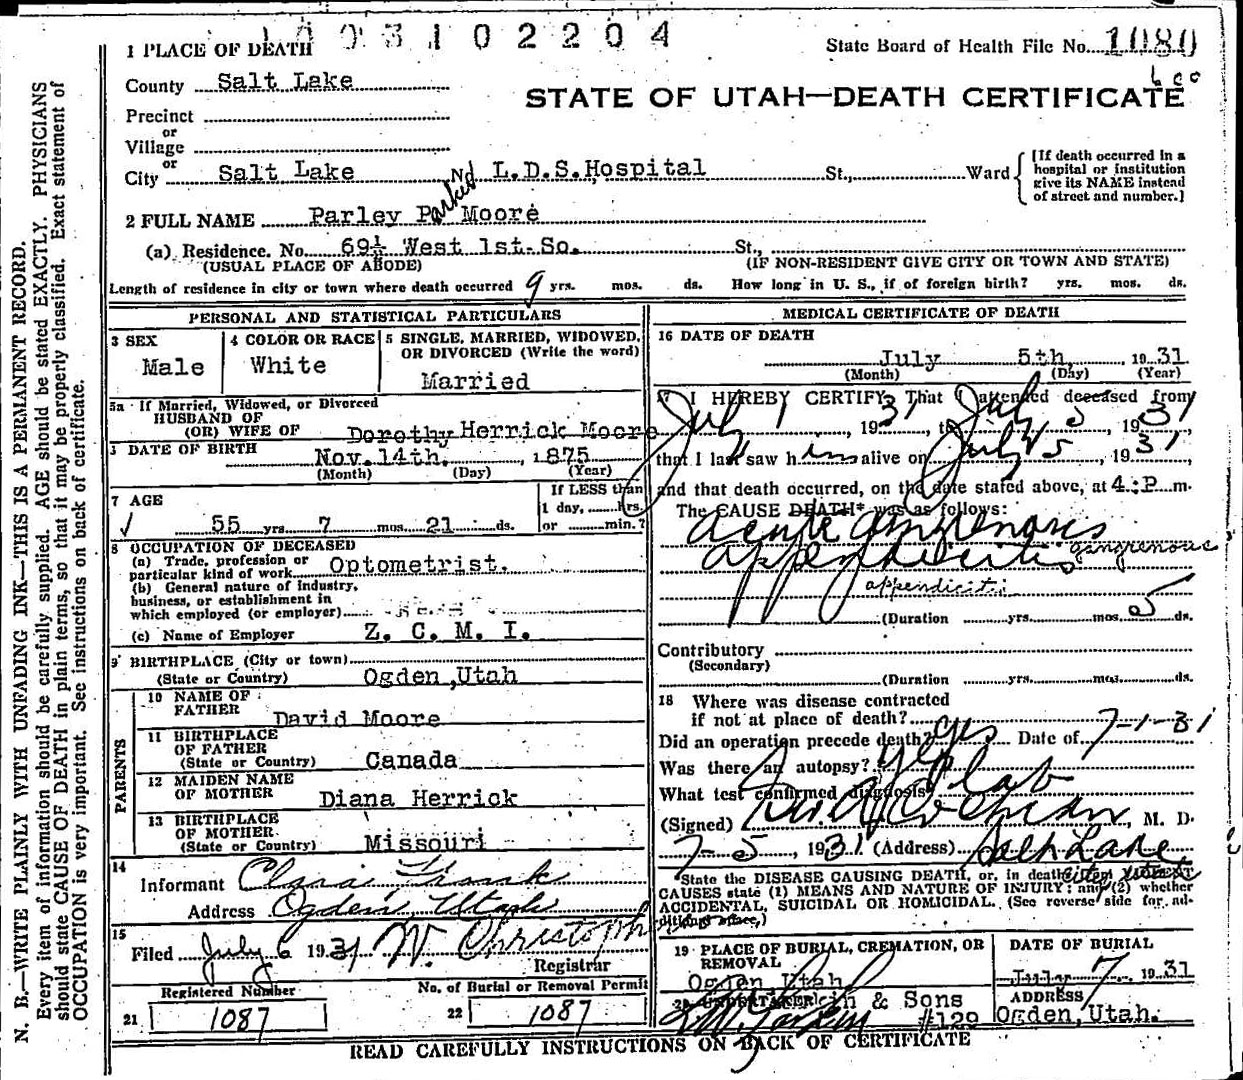 1003102204
1 PLACE OF DEATH
State Board of Health File No. 1080
County Salt Lake
STATE OF UTAH—DEATH CERTIFICATE
Precinct
or
Village
or
City Salt Lake No L.D.S. Hospital St., Ward
[If death occurred in a
hospital or institution
give its NAME instead
of street and number.]
2 FULL NAME Parley Parker Moore
(a) Residence. No. 69½ West 1st. So. St.,
(USUAL PLACE OF ABODE) (IF NON-RESIDENT GIVE CITY OR TOWN AND STATE)
Length of residence in city or town where death occurred 9 yrs. mos. ds. How long in U. S., if of foreign birth? yrs. mos. ds.
PERSONAL AND STATISTICAL PARTICULARS
3 SEX
Male
4 COLOR OR RACE
White
5 SINGLE, MARRIED, WIDOWED,
OR DIVORCED (Write the word)
Married
5a If Married, Widowed, or Divorced
HUSBAND OF
(OR) WIFE OF Dorothy Herrick Moore
DATE OF BIRTH Nov. 14th, 1875
(Month) (Day) (Year)
7 AGE
55 yrs 7 mos. 21 ds.
If LESS than
1 day, hrs.
or min.?
8 OCCUPATION OF DECEASED
(a) Trade, profession or
particular kind of work Optometrist.
(b) General nature of industry,
business, or establishment in
which employed (or employer)
(c) Name of Employer Z. C. M. I.
9 BIRTHPLACE (City or town)
(State or Country) Ogden, Utah
PARENTS
10 NAME OF
FATHER David Moore
11 BIRTHPLACE
OF FATHER
(State or Country) Canada
12 MAIDEN NAME
OF MOTHER Diana Herrick
13 BIRTHPLACE
OF MOTHER
(State or Country) Missouri
14
Informant Clara
Address Ogden, Utah
15
Filed July 6 1931 W. Christoph
Registrar
Registered Number
21 1087
No. of Burial or Removal Permit
22 1087
MEDICAL CERTIFICATE OF DEATH
16 DATE OF DEATH
July 5th, 1931
(Month) (Day) (Year)
17 I HEREBY CERTIFY, That I attended deceased from
July 1, 1931, to July 5, 1931
that I last saw him alive on July 5, 1931,
and that death occurred, on the date stated above, at 4:P m.
The CAUSE DEATH* was as follows:
acute gangrenous
appendicitis gangrenous
appendicitis
(Duration yrs. mos. 5 ds.
Contributory
(Secondary)
(Duration yrs. mos. ds.
18 Where was disease contracted
if not at place of death?
Did an operation precede death? yes Date of 7-1-31
Was there an autopsy?
What test confirmed diagnosis? lab
(Signed) M. D.
7-5, 1931 (Address) Salt Lake
State the DISEASE CAUSING DEATH, or, in death from VIOLENT
CAUSES state (1) MEANS AND NATURE OF INJURY; and (2) whether
ACCIDENTAL, SUICIDAL OR HOMICIDAL. (See reverse side for ad-
ditional space.)
19 PLACE OF BURIAL, CREMATION, OR
REMOVAL
Ogden, Utah
DATE OF BURIAL
July 7 1931
20 UNDERTAKER & Sons
#129
ADDRESS
Ogden, Utah.
READ CAREFULLY INSTRUCTIONS ON BACK OF CERTIFICATE
N. B.—WRITE PLAINLY WITH UNFADING INK—THIS IS A PERMANENT RECORD.
Every item of information should be carefully supplied. AGE should be stated EXACTLY. PHYSICIANS
should state CAUSE OF DEATH in plain terms, so that it may be properly classified. Exact statement of
OCCUPATION is very important. See instructions on back of certificate.